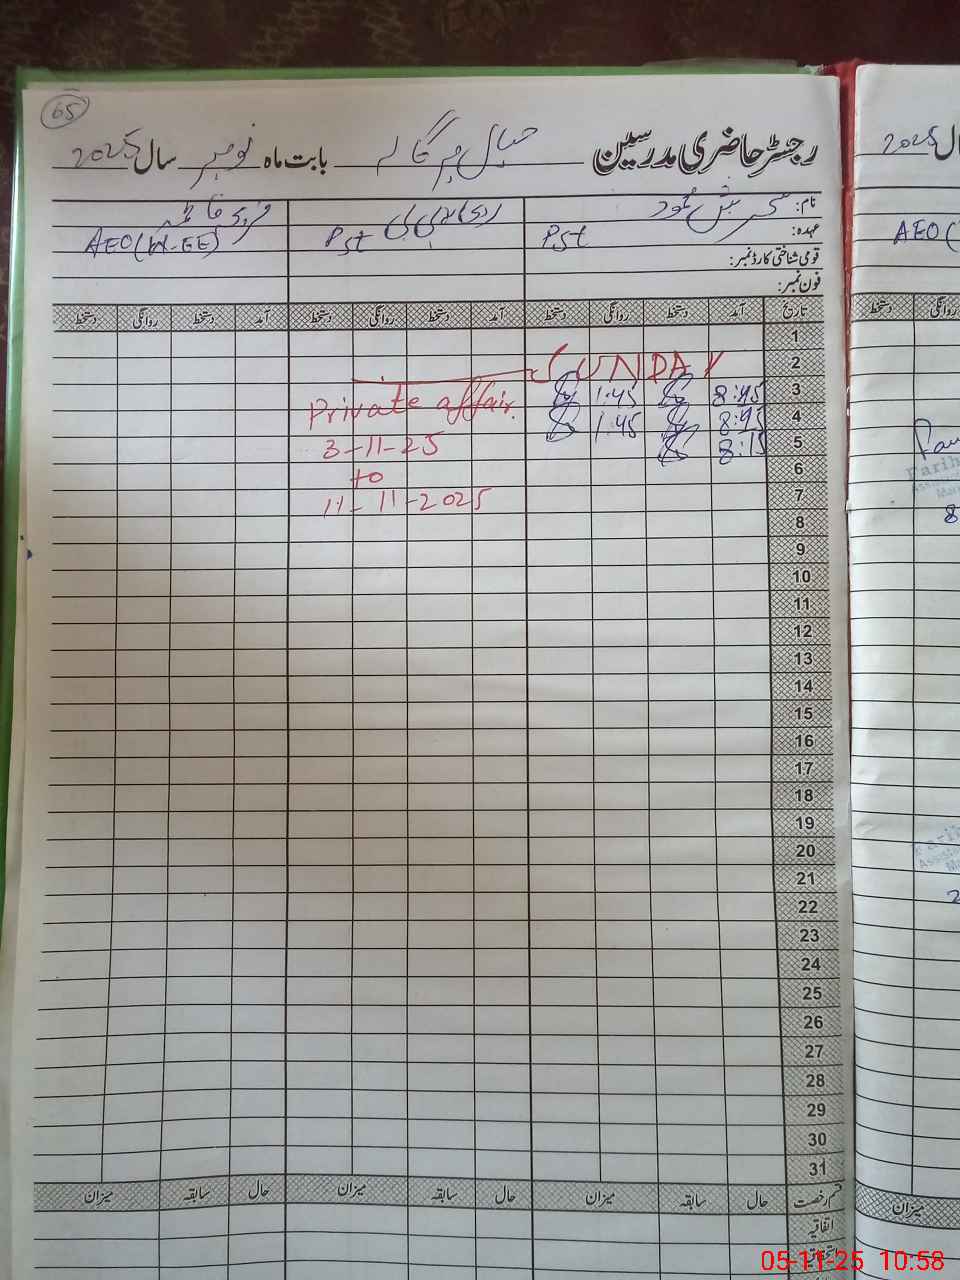 65
رجسٹر حاضری مدرسین بابت ماہ نومبر سال 2025
2025
نام:
عہدہ: Pst Pst AEO(W-EE)
AEO(
قومی شناختی کارڈ نمبر:
فون نمبر:
تاریخ آمد دستخط روانگی دستخط آمد دستخط روانگی دستخط آمد دستخط روانگی دستخط
روانگی دستخط
1
2 SUNDAY
3 8:45 1:45 Private affair
4 8:45 1:45 3-11-25
5 8:15 to
6 11-11-2025
7
8
9
10
11
12
13
14
15
16
17
18
19
20
21
22
23
24
25
26
27
28
29
30
31
قسم رخصت حال سابقہ میزان حال سابقہ میزان حال سابقہ میزان
میزان
اتفاقیہ
05-11-25 10:58